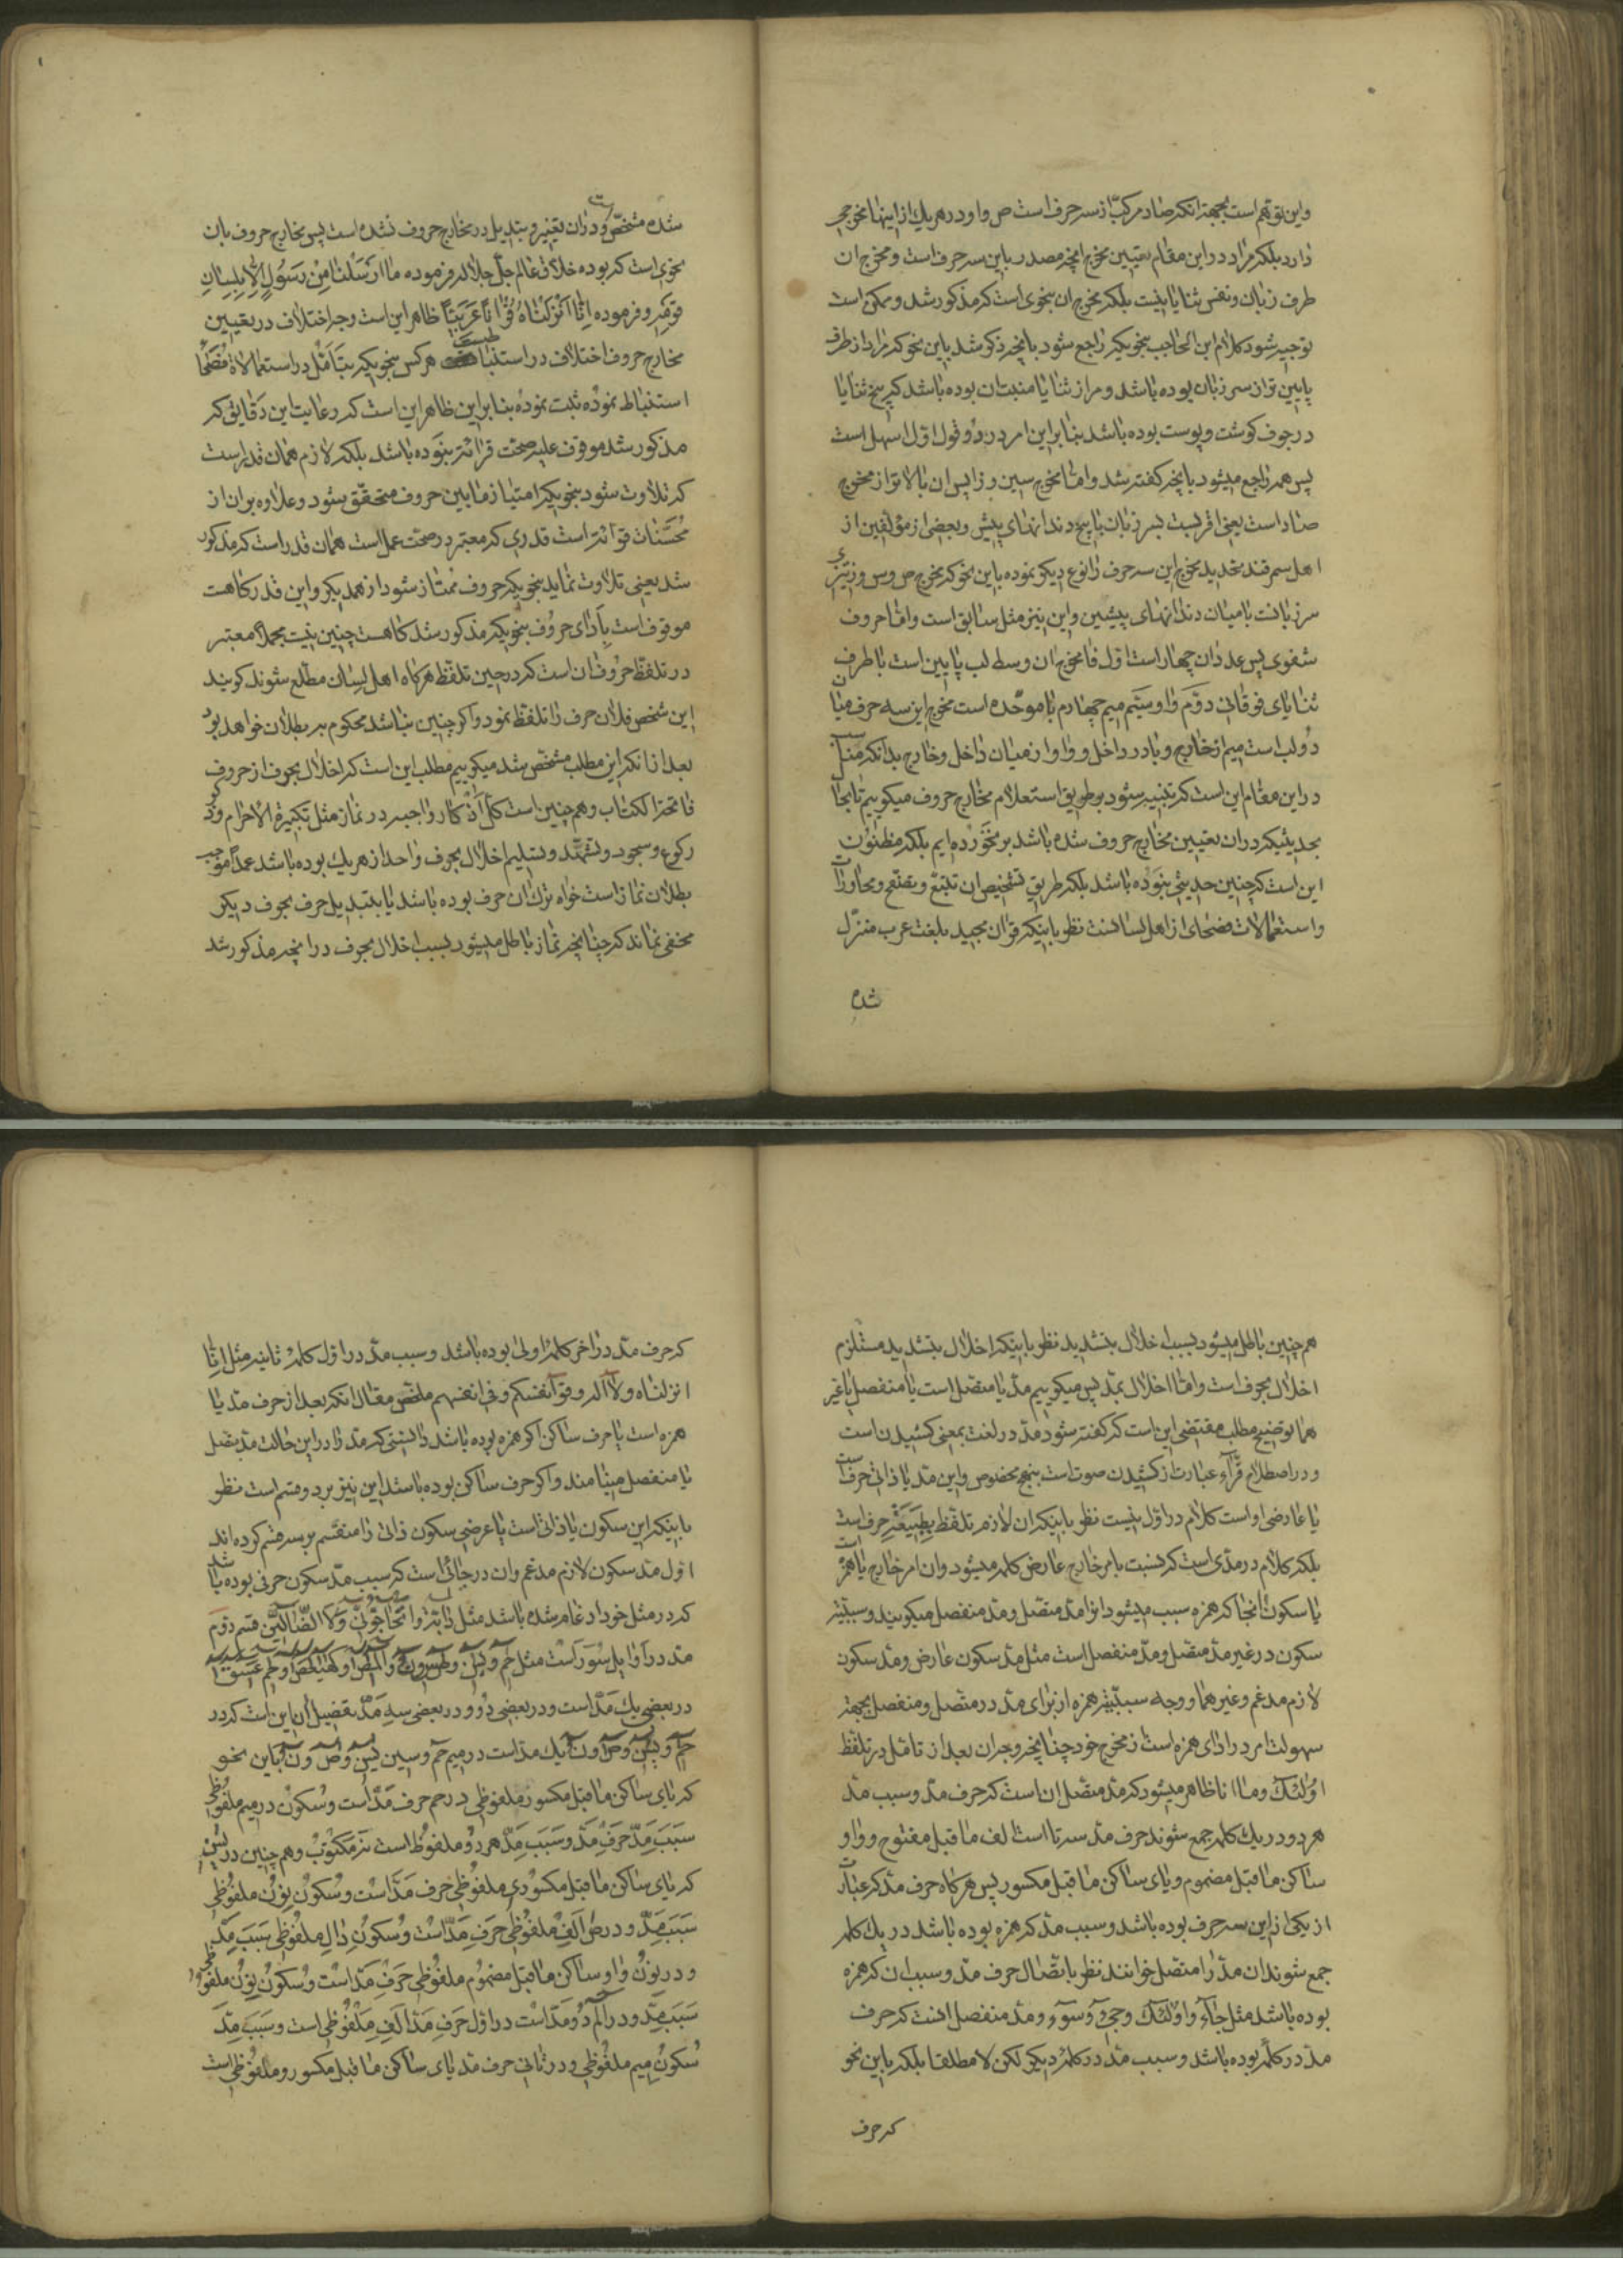 واین توهم است بجهة انکه صاد مرکب از سه حرفست ص و ا و د و در هر یك از اینها مخرجی
دارد بلکه مراد در این مقام تعیین مخرج انچه مصدر باین سه حرفست و مخرج ان
طرف زبان و نفس ثنایا نیست بلکه مخرج ان بنحوی است که مذکور شد و ممکن است
توجیه شود کلام ابن الحاجب بنحویکه راجع شود بانچه ذکر شد باین نحو که مراد از طرف
پایین تر از سر زبان بوده باشد و مراد از ثنایا منبت ان بوده باشد که بیخ ثنایا
در جوف کوشت و پوست بوده باشد بنا براین امر در دو قول اول اسهل است
پس همه راجع میشود بانچه کفته شد و اما مخرج سین و زا پس ان بالاتر از مخرج
صاد است یعنی اقربست بسر زبان با بیخ دندانهای پیش و بعضی از مؤلفین از
اهل سمرقند تحدید مخرج این سه حرف را نوع دیکر نموده باین نحو که مخرج ص و س و ز تیزی
سر زبانست با میان دندانهای پیشین و این نیز مثل سابق است و اما حروف
شفوی پس عدد ان چهار است اول فا مخرج ان وسط لب پایین است با طرف
ثنایای فوقانی دوّم واو سیّم میم چهارم با موحّده است مخرج این سه حرف میان
دو لب است میم از خارج و با در داخل و واو از میان داخل و خارج بدانکه مناسب
در این مقام این است که تنبیه شود بر طریق استعلام مخارج حروف میکوییم تا بحال
بحدیثیکه در ان تعیین مخارج حروف شده باشد بر نخورده ایم بلکه مظنون
این است که چنین حدیثی نبوده باشد بلکه طریق تشخیص ان تتبع و تصفح و محاورات
و استعمالات فصحای از اهل لسانست نظر باینکه قران مجید بلغت عرب منزّل
شده
شده مشخّص است و در ان تغییر و تبدیل در مخارج حروف نشده است پس مخارج حروف بان
نحوی است که بوده خلاق عالم جلّ جلاله فرموده ما ارسلنا من رسول الا بلسان
قومه و فرموده انا انزلناه قرانًا عربیًا ظاهر این است وجه اختلاف در تعیین
مخارج حروف اختلاف در استنباطست هر کس بنحویکه بتأمّل در استعمالات فصحا
استنباط نموده ثبت نموده بنا براین ظاهر این است که رعایت این دقایق که
مذکور شد موقوف علیه صحّت قرائت نبوده باشد بلکه لازم همان قدر است
که تلاوت شود بنحویکه امتیاز ما بین حروف متحقّق شود و علاوه بر ان از
محسّنات قرائت است قدری که معتبر در صحّت عمل است همان قدر است که مذکور
شد یعنی تلاوت نماید بنحویکه حروف ممتاز شود از همدیکر و این قدر کاهست
موقوف است بادای حروف بنحویکه مذکور شد کاهست چنین نیست مجملا معتبر
در تلفّظ حروف ان است که در حین تلفّظ هر کاه اهل لسان مطّلع شوند کویند
این شخص فلان حرف را تلفّظ نمود و اکر چنین نباشد محکوم به بطلان خواهد بود
بعد از انکه این مطلب مشخّص شد میکوییم مطلب این است که اخلال بحرف از حروف
فاتحة الکتاب و هم چنین است کل اذکار واجبه در نماز مثل تکبیرة الاحرام و ذکر
رکوع و سجود و تشهّد و تسلیم اخلال بحرف واحد از هر یك بوده باشد عمدا موجب
بطلان نماز است خواه ترك ان حرف بوده باشد یا بتبدیل حرف بحرف دیکر
مخفی نماند که چنانچه نماز باطل میشود بسبب اخلال بحرف در انچه مذکور شد
هم چنین باطل میشود بسبب اخلال بتشدید نظر باینکه اخلال بتشدید مستلزم
اخلال بحرف است و امّا اخلال بمدّ پس میکوییم مدّ یا متصل است یا منفصل یا غیر
هما توضیح مطلب مقتضی این است که کفته شود مدّ در لغت بمعنی کشیدن است
و در اصطلاح قرّاء عبارت از کشیدن صوت است بنهج مخصوص و این مدّ یا ذاتی حرف است
یا عارضی او است کلام در اوّل نیست نظر باینکه ان لازم تلفّظ بطبیعة حرفست
بلکه کلام در مدّی است که بسبب امر خارج عارض کلمه میشود و ان امر خارج یا همزه است
یا سکون انجا که همزه سبب میشود انرا مدّ متصل و مدّ منفصل میکویند و سببیّت
سکون در غیر مدّ متصل و مدّ منفصل است مثل مدّ سکون عارض و مدّ سکون
لازم مدغم و غیر هما و وجه سببیّت همزه از برای مدّ در متصل و منفصل بجهة
سهولت امر در ادای همزه است از مخرج خود چنانچه وجه ان بعد از تأمّل در تلفّظ
اولئك و ما انا ظاهر میشود که مدّ متصل ان است که حرف مدّ و سبب مدّ
هر دو در یك کلمه جمع شوند حرف مدّ سه تا است الف ما قبل مفتوح و واو
ساکن ما قبل مضموم و یای ساکن ما قبل مکسور پس هر کاه حرف مدّ که عبارت
از یکی از این سه حرف بوده باشد و سبب مدّ که همزه بوده باشد در یك کلمه
جمع شوند ان مدّ را متصل خوانند نظر باتّصال حرف مدّ و سبب ان که همزه
بوده باشد مثل جآء و اولئك و جیء و سوء و مدّ منفصل انست که حرف
مدّ در کلمه بوده باشد و سبب مدّ در کلمه دیکر لکن لا مطلقا بلکه باین نحو
که حرف
که حرف مدّ در اخر کلمه اولی بوده باشد و سبب مدّ در اوّل کلمه ثانیه مثل انّا
انزلناه و لا اله و قوا انفسکم و فی انفسهم ملخّص مقال انکه بعد از حرف مدّ یا
همزه است یا حرف ساکن اکر همزه بوده باشد دانستی که مدّ را در این حالت متصل
یا منفصل مینامند و اکر حرف ساکن بوده باشد این نیز بر دو قسم است نظر
باینکه این سکون یا ذاتی است یا عرضی سکون ذاتی را منقسم بر سه قسم کرده اند
اوّل مدّ سکون لازم مدغم و ان در جائی است که سبب مدّ سکون حرفی بوده باشد
که در مثل خود ادغام شده باشد مثل دابّة و اتحاجّونّی و لا الضّالّین قسم دوّم
مدّ در اوایل سور است مثل حم و یس و
در بعضی یك مدّ است و در بعضی دو و در بعضی سه مدّ تفصیل ان این است که در
حم و یس و ص و ن یك مدّ است در میم حم و سین یس و ص و ن باین نحو
که یای ساکن ما قبل مکسور ملفوظی در حم حرف مدّ است و سکون در میم ملفوظی
سبب مدّ حرف مدّ و سبب مدّ هر دو ملفوظ است نه مکتوب و هم چنین در یس
که یای ساکن ما قبل مکسوری ملفوظی حرف مدّ است و سکون نون ملفوظی
سبب مدّ و در ص الف ملفوظی حرف مدّ است و سکون دال ملفوظی سبب مدّ
و در نون واو ساکن ما قبل مضموم ملفوظی حرف مدّ است و سکون نون ملفوظی
سبب مدّ و در الم دو مدّ است در اوّل حرف مدّ الف ملفوظی است و سبب مدّ
سکون میم ملفوظی و در ثانی حرف مدّ یای ساکن ما قبل مکسور و ملفوظی است